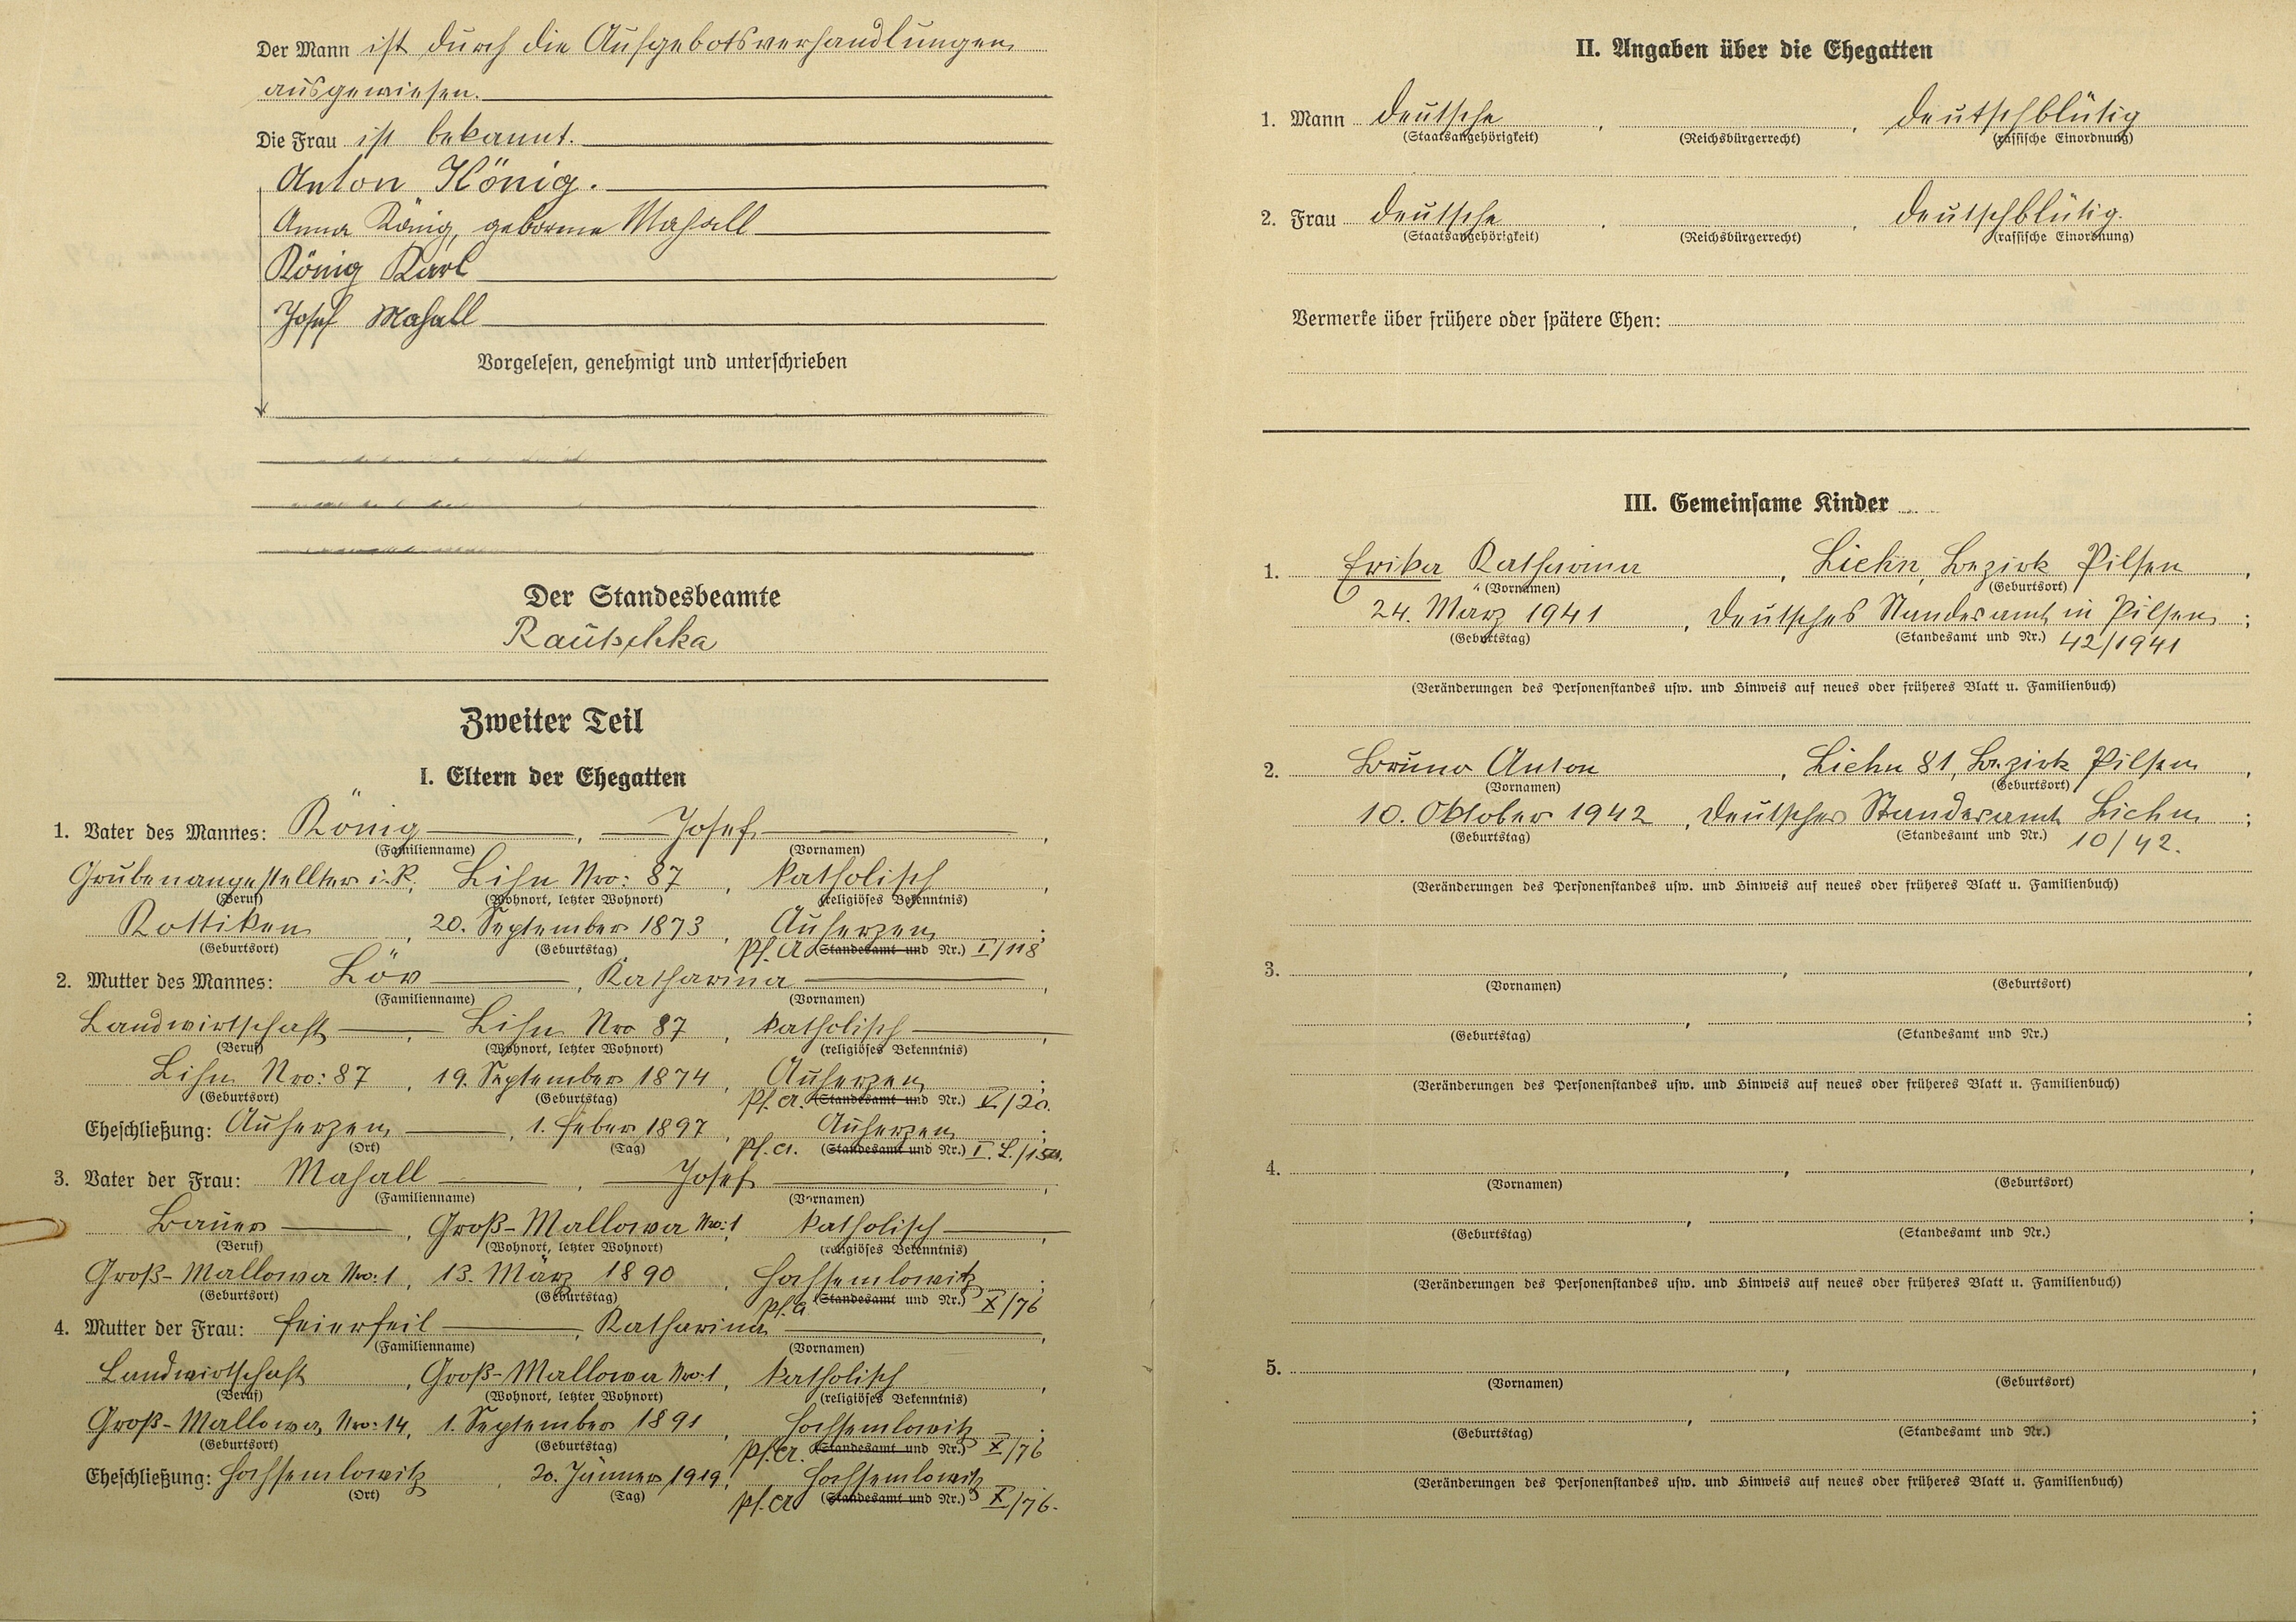 Der Mann ist durch die Aufgebotsverhandlungen
ausgewiesen.
Die Frau ist bekannt.
Anton König.
Anna König, geborene Mahall
König Karl
Josef Mahall
Vorgelesen, genehmigt und unterschrieben
Der Standesbeamte
Rautschka
Zweiter Teil
I. Eltern der Ehegatten
1. Vater des Mannes: König, Josef,
(Familienname) (Vornamen)
Grubenangestellter i. R., Lihn Nro: 87, katholisch,
(Beruf) (Wohnort, letzter Wohnort) (religiöses Bekenntnis)
Kottiken, 20. September 1873, Auherzen;
(Geburtsort) (Geburtstag) Pf. A. (Standesamt und Nr.) I/118
2. Mutter des Mannes: Löv, Katharina,
(Familienname) (Vornamen)
Landwirtschaft, Lihn Nro 87, katholisch,
(Beruf) (Wohnort, letzter Wohnort) (religiöses Bekenntnis)
Lihn Nro: 87, 19. September 1874, Auherzen;
(Geburtsort) (Geburtstag) Pf. A. (Standesamt und Nr.) V/20.
Eheschließung: Auherzen, 1. Feber 1897, Auherzen;
(Ort) (Tag) Pf. A. (Standesamt und Nr.) I. L./
3. Vater der Frau: Mahall, Josef,
(Familienname) (Vornamen)
Bauer, Groß-Mallowa Nro: 1, katholisch,
(Beruf) (Wohnort, letzter Wohnort) (religiöses Bekenntnis)
Groß-Mallowa Nro: 1, 13. März 1890, Hochsemlowitz;
(Geburtsort) (Geburtstag) Pf. A. (Standesamt und Nr.) X/76
4. Mutter der Frau: Feierfeil, Katharina,
(Familienname) (Vornamen)
Landwirtschaft, Groß-Mallowa Nro: 1, katholisch,
(Beruf) (Wohnort, letzter Wohnort) (religiöses Bekenntnis)
Groß-Mallowa, Nro: 14, 1. September 1891, Hochsemlowitz;
(Geburtsort) (Geburtstag) Pf. A. (Standesamt und Nr.) X/76
Eheschließung: Hochsemlowitz, 20. Jänner 1919, Hochsemlowitz
(Ort) (Tag) Pf. A. (Standesamt und Nr.) X/76.
II. Angaben über die Ehegatten
1. Mann deutsche, , deutschblütig
(Staatsangehörigkeit) (Reichsbürgerrecht) (rassische Einordnung)
2. Frau deutsche, , deutschblütig.
(Staatsangehörigkeit) (Reichsbürgerrecht) (rassische Einordnung)
Vermerke über frühere oder spätere Ehen:
III. Gemeinsame Kinder
1. Erika Katharina, Liehn, Bezirk Pilsen,
(Vornamen) (Geburtsort)
24. März 1941, Deutsches Standesamt in Pilsen;
(Geburtstag) (Standesamt und Nr.) 42/1941
(Veränderungen des Personenstandes usw. und Hinweis auf neues oder früheres Blatt u. Familienbuch)
2. Bruno Anton, Liehn 81, Bezirk Pilsen,
(Vornamen) (Geburtsort)
10. Oktober 1942, Deutsches Standesamt Liehn;
(Geburtstag) (Standesamt und Nr.) 10/42.
(Veränderungen des Personenstandes usw. und Hinweis auf neues oder früheres Blatt u. Familienbuch)
3. , ,
(Vornamen) (Geburtsort)
, ;
(Geburtstag) (Standesamt und Nr.)
(Veränderungen des Personenstandes usw. und Hinweis auf neues oder früheres Blatt u. Familienbuch)
4. , ,
(Vornamen) (Geburtsort)
, ;
(Geburtstag) (Standesamt und Nr.)
(Veränderungen des Personenstandes usw. und Hinweis auf neues oder früheres Blatt u. Familienbuch)
5. , ,
(Vornamen) (Geburtsort)
, ;
(Geburtstag) (Standesamt und Nr.)
(Veränderungen des Personenstandes usw. und Hinweis auf neues oder früheres Blatt u. Familienbuch)